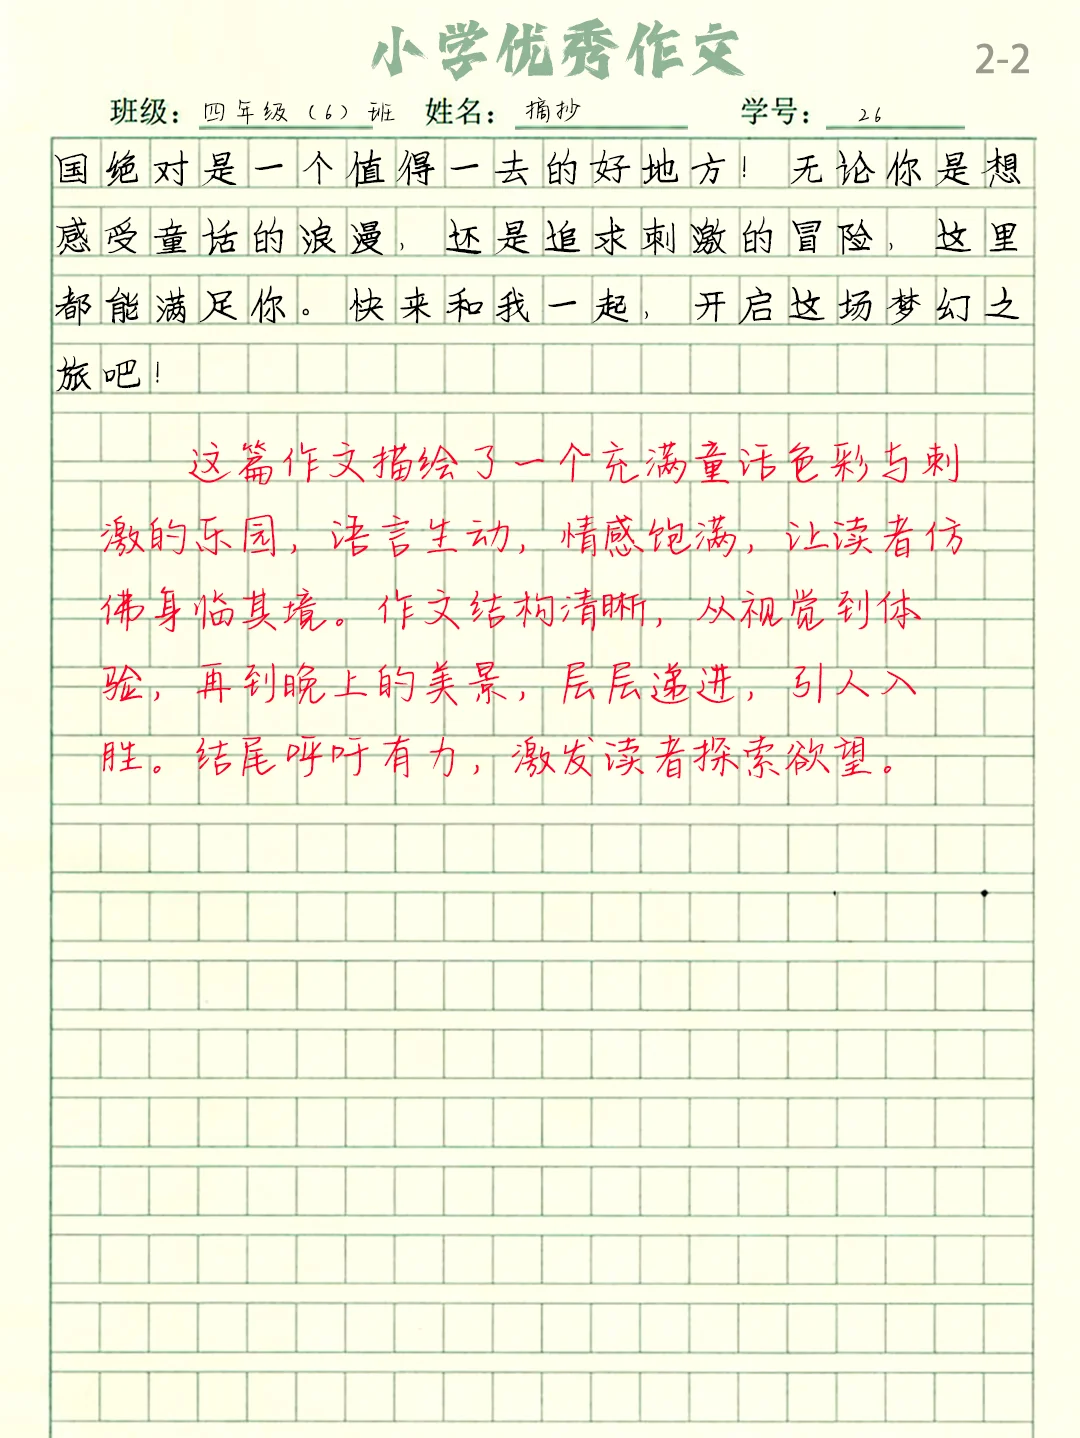 小学优秀作文
2-2
班级：四年级（6）班 姓名：摘抄 学号：26
国绝对是一个值得一去的好地方！无论你是想
感受童话的浪漫，还是追求刺激的冒险，这里
都能满足你。快来和我一起，开启这场梦幻之
旅吧！
这篇作文描绘了一个充满童话色彩与刺
激的乐园，语言生动，情感饱满，让读者仿
佛身临其境。作文结构清晰，从视觉到体
验，再到晚上的美景，层层递进，引人入
胜。结尾呼吁有力，激发读者探索欲望。